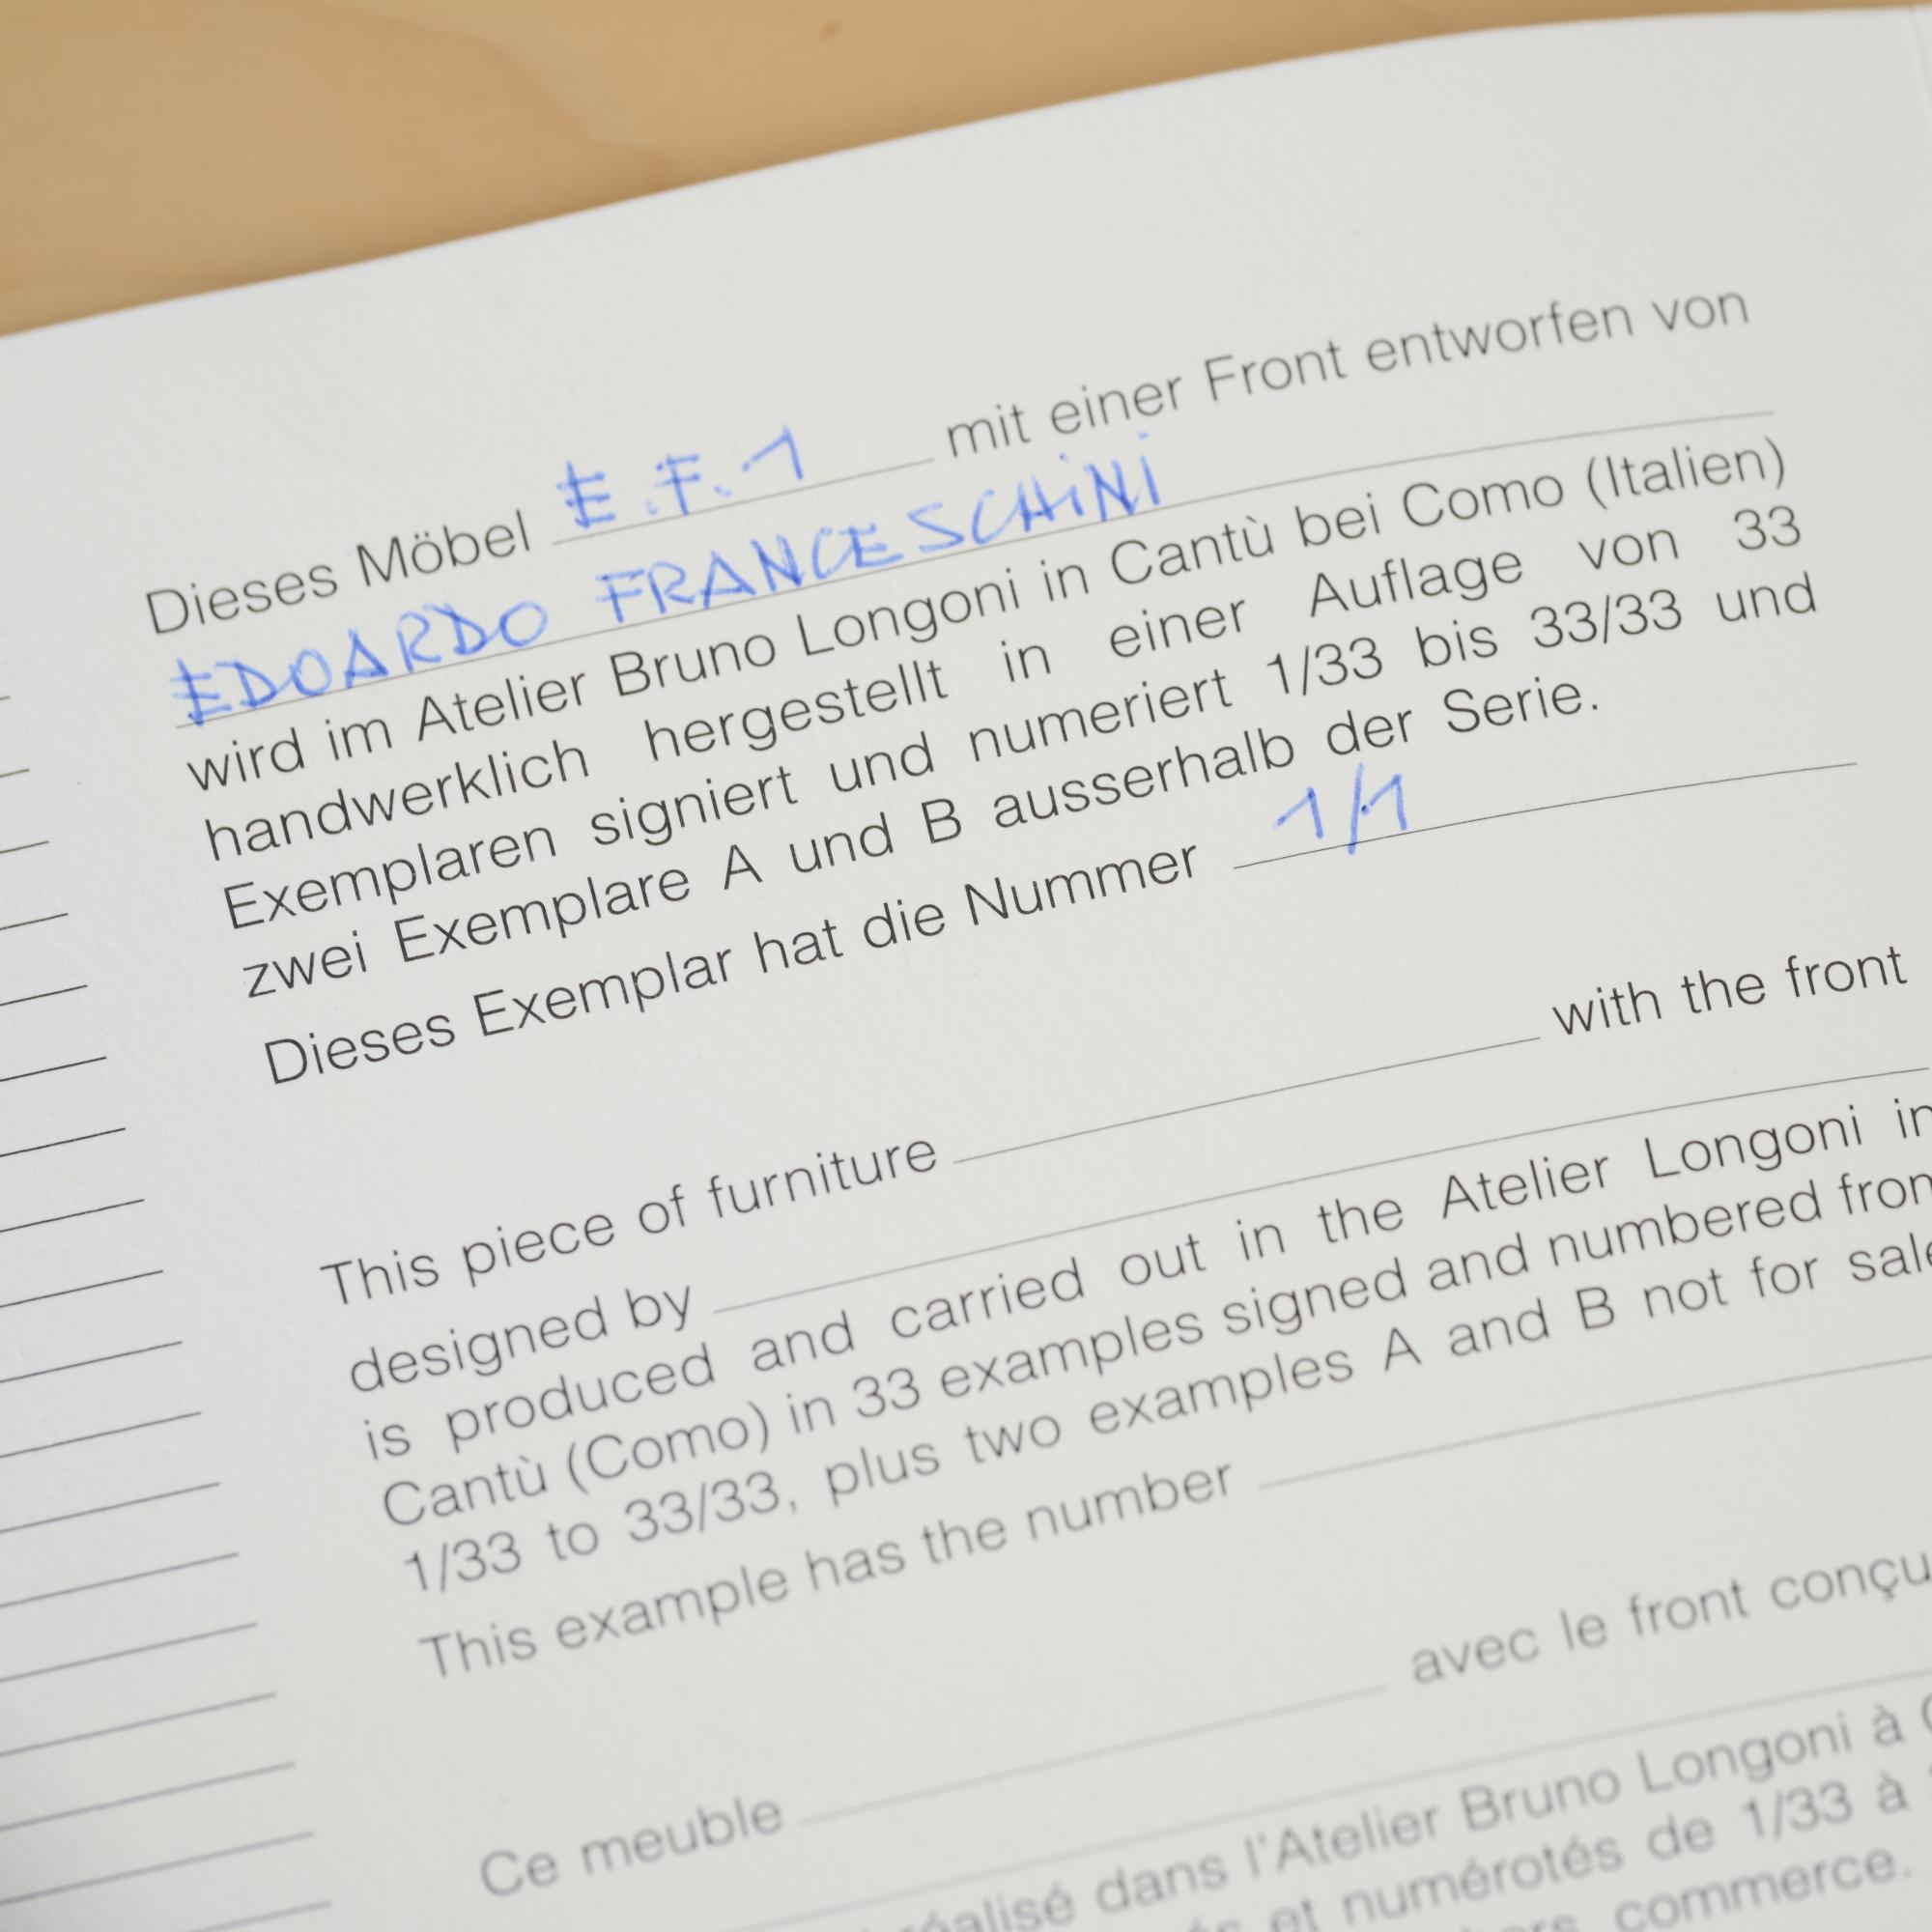 Dieses Möbel E.F.1 mit einer Front entworfen von
EDOARDO FRANCESCHINI
wird im Atelier Bruno Longoni in Cantù bei Como (Italien)
handwerklich hergestellt in einer Auflage von 33
Exemplaren signiert und numeriert 1/33 bis 33/33 und
zwei Exemplare A und B ausserhalb der Serie.
Dieses Exemplar hat die Nummer 1/1
This piece of furniture with the front
designed by
is produced and carried out in the Atelier Longoni in
Cantù (Como) in 33 examples signed and numbered from
1/33 to 33/33, plus two examples A and B not for sale
This example has the number
Ce meuble avec le front conçu
réalisé dans l'Atelier Bruno Longoni à
et numérotés de 1/33 à
hors commerce.